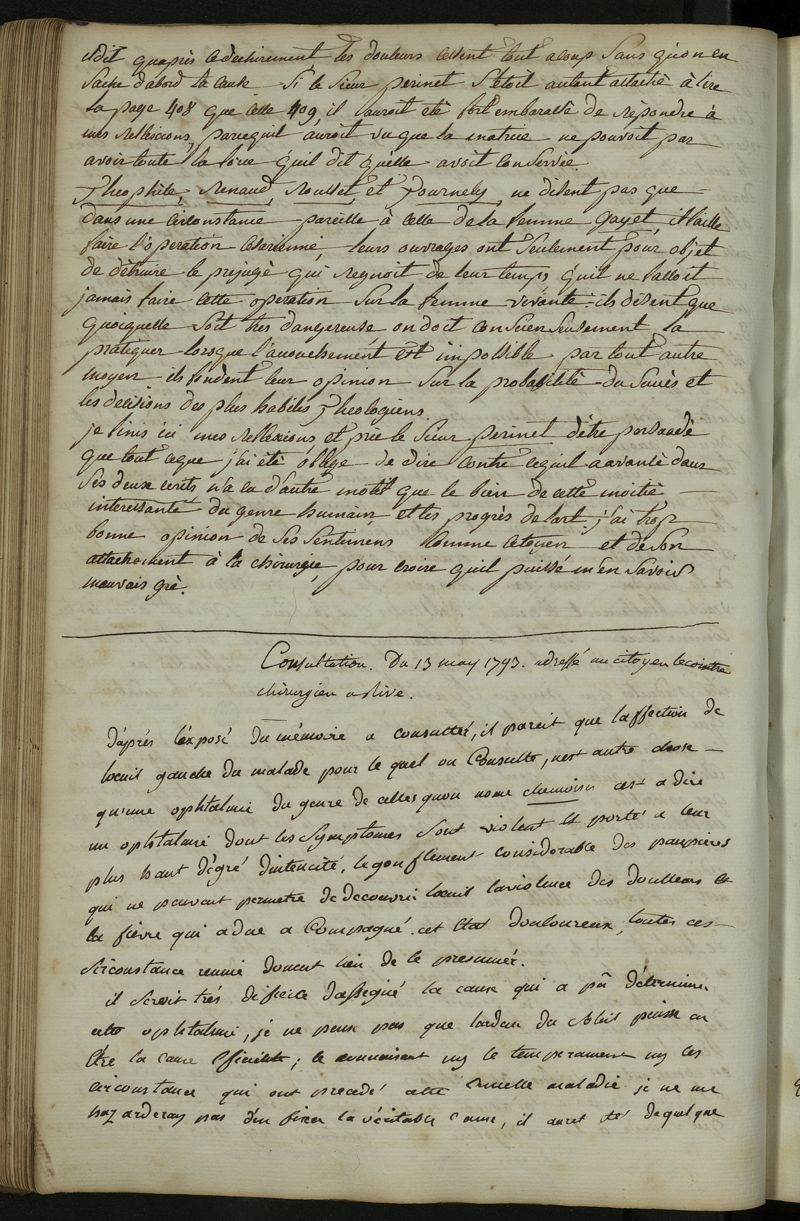 et dit quaprès ce dechirement, les douleurs cessent tout acoup sans quon en
sache dabord la cause. Si le sieur perinet s'etoit autant attaché à lire
la page 408 que celle 409, il auroit été fort embarassé de répondre à
mes reflexions, parcequil auroit vu que la matrice ne pouvoit pas
avoir toute la force qu'il dit qu'elle avoit conservée.
Theophile, Renaud, Rousset et Tournely, ne disent pas que
dans une circonstance pareille à celle de la femme gayet, il faille
faire l'operation Cesarienne, leurs ouvrages ont seulement pour objet
de détruire le préjugé qui regnoit de leur temps qu'il ne falloit
jamais faire cette operation sur la femme vivante. ils disent que
quoiquelle soit tres dangereuse on doit consciencieusement la
pratiquer lorsque l'accouchement est impossible par tout autre
moyen. ils fondent leur opinion sur la probabilité du succès et
les decisions des plus habiles Theologiens.
je finis ici mes reflexions, et prie le sieur perinet d'être persuadé
que tout ceque j'ai été obligé de dire contre cequil a avancé dans
ses deux ecrits n'a eu d'autre motif que le bien de cette moitié
interessante du genre humain, et les progrès de lart, j'ai trop
bonne opinion de ses sentimens comme citoyen et de son
attachement à la chirurgie, pour croire qu'il puisse m'en savoir
mauvais gré.
Consultation. Du 13 may 1793. adressé au citoyen lecointre
chirurgien a
d'aprés l'éxposé du mémoire a consulter, il paroit que laffection de
loeuil gauche du malade pour le quel on Consulte, nest autre chose
qu'une ophtalmie du genre de celles quon nome chemosis cest a dire
un ophtalmie dont les symptomes sont violent et porté a leur
plus haut dégré dintencité. le gonflement considerable des paupieres
qui ne peuvent permetre de decouvrir loeuil la violence des douleurs et
la fievre qui a du a Compagné cet état douloureux, toutes ces
sirconstance reunie donent lieu de le presumer.
il seroit trés dificile dassigné la cause qui a pû déterminer
cette ophtalmie, je ne pense pas que lardeur du soleil puisse en
être la cause éficiente; ne connoissant ny le temperament ny les
circonstance qui ont precedé cette cruelle maladie je ne me
hazarderay pas d'en fixer la véritable cause, il auret été de quelque